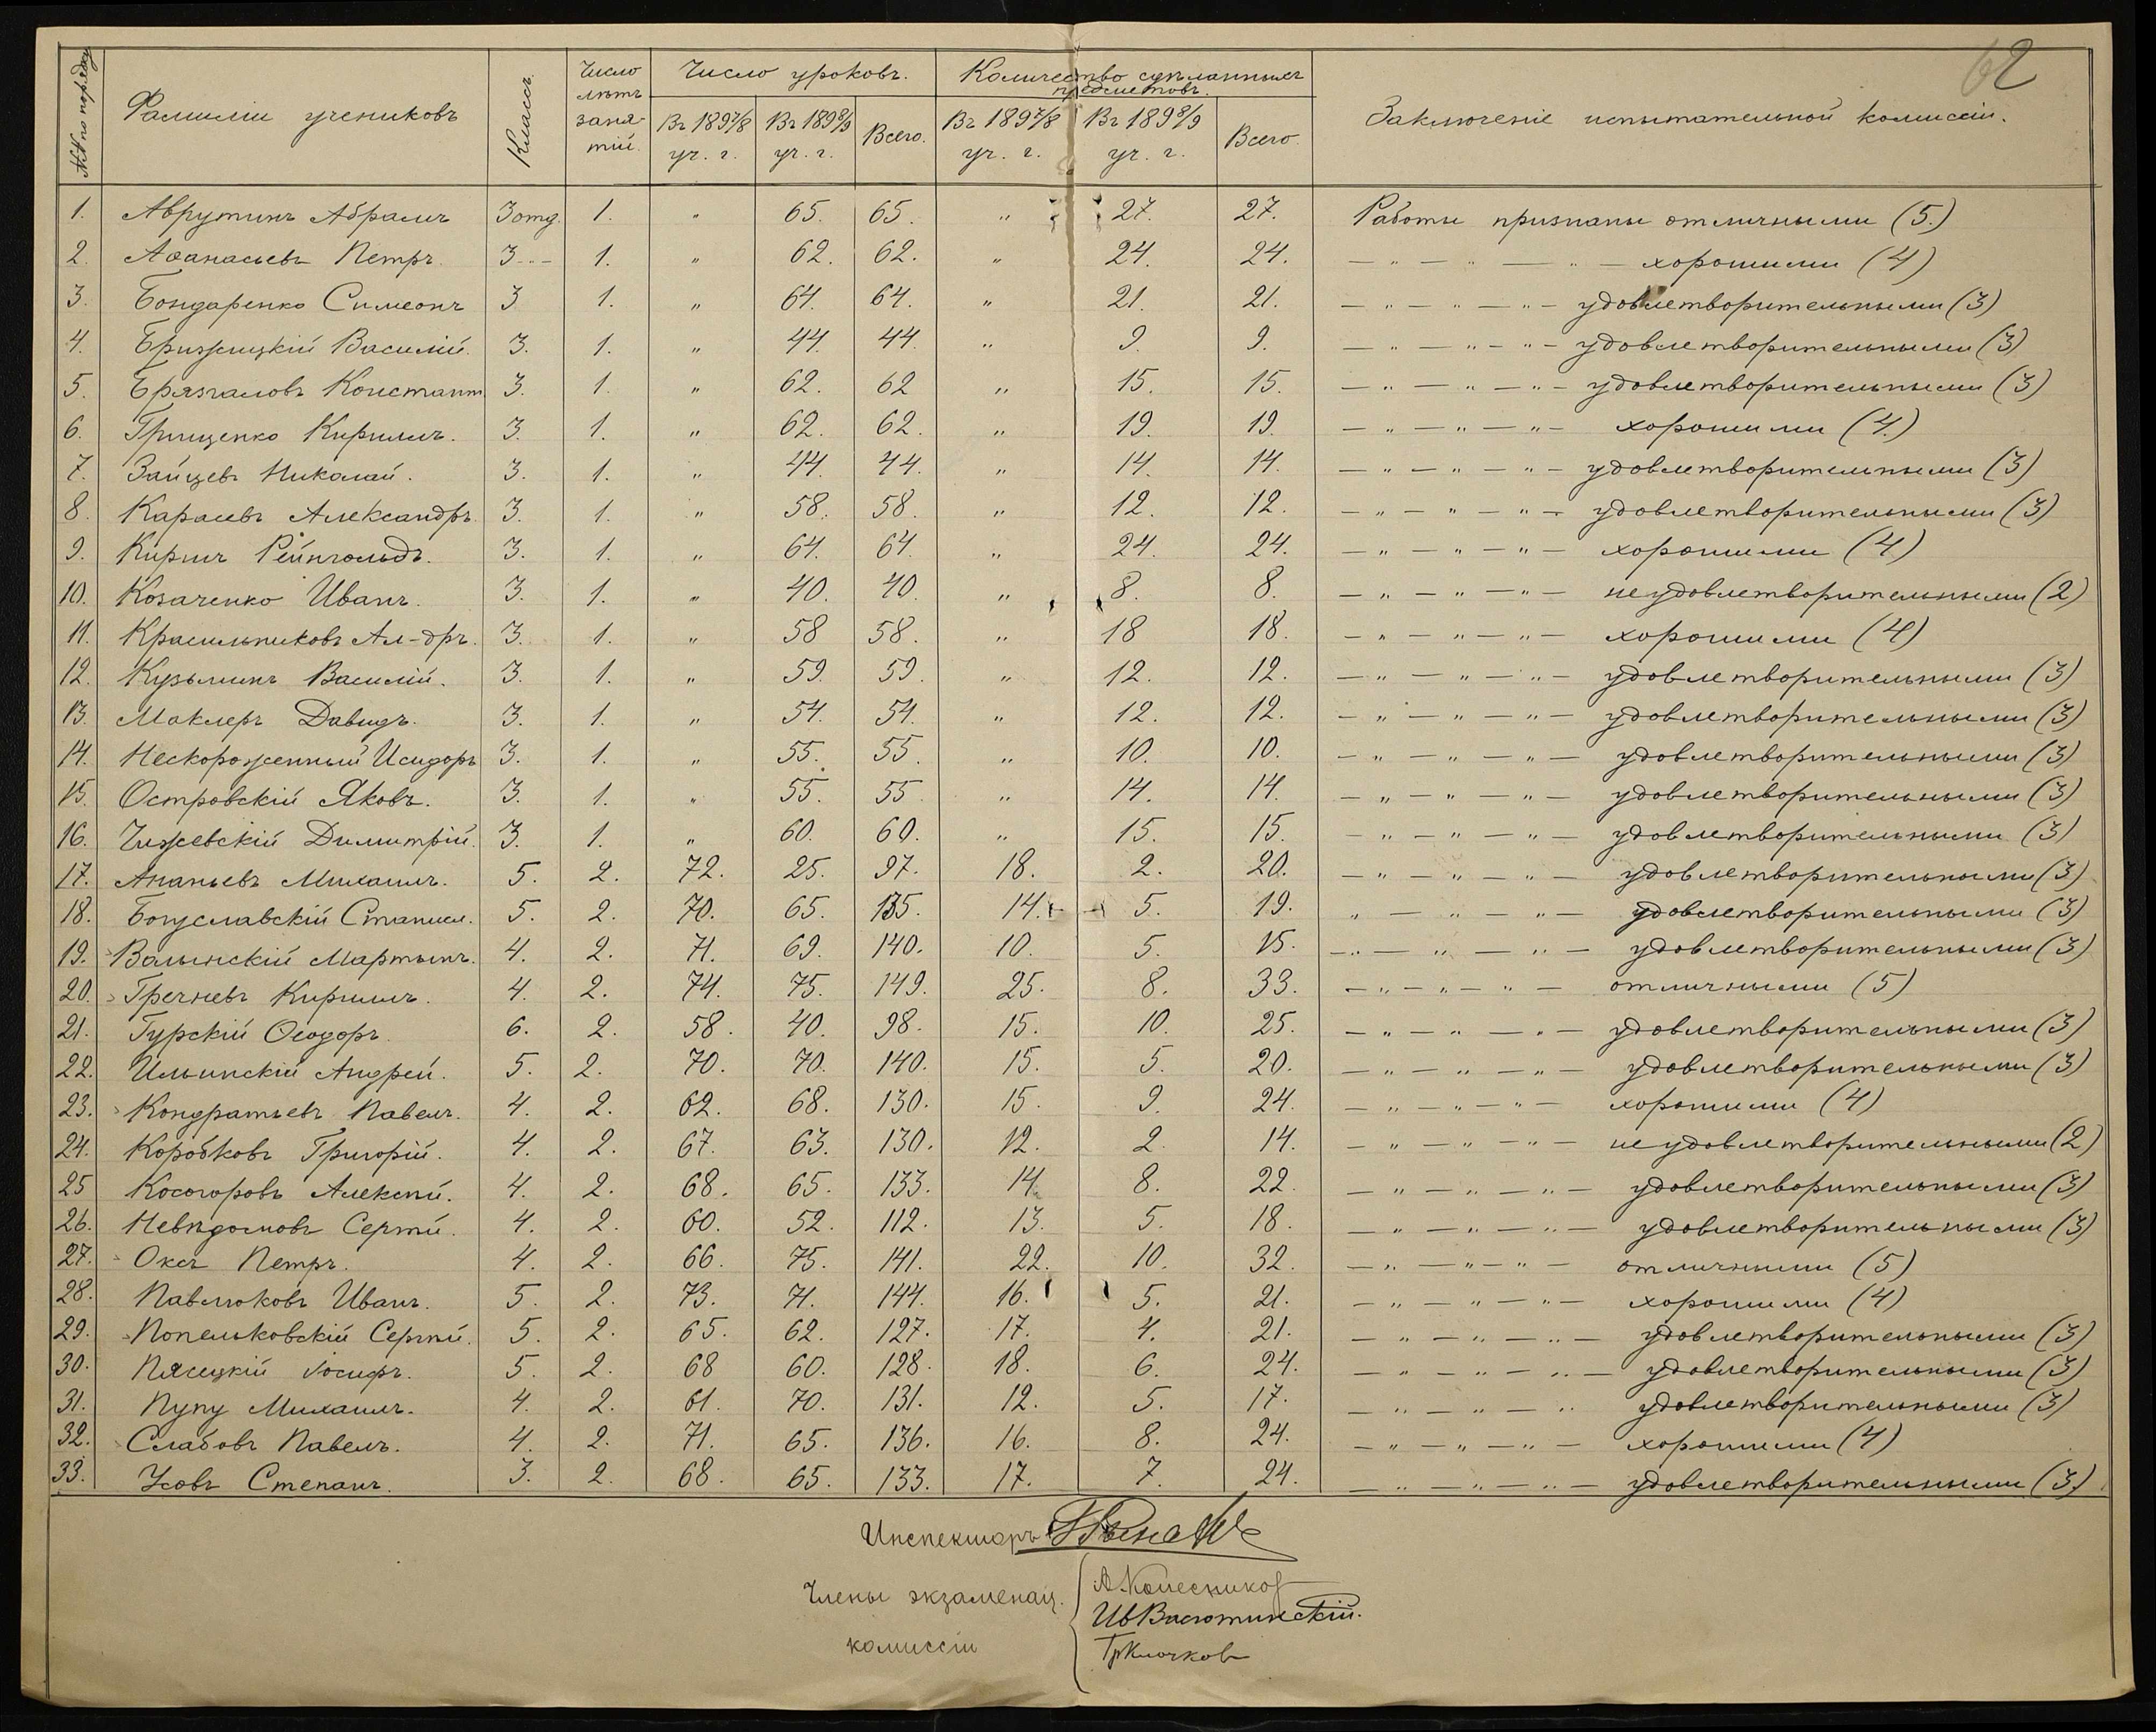 62
№№ по порядку Фамиліи учениковъ Классъ. Число лѣтъ заня-тій. Число уроковъ. Количество сдѣланныхъ предметовъ. Заключеніе испытательной комиссіи.
Въ 1897/8 уч. г. Въ 1898/9 уч. г. Всего. Въ 1897/8 уч. г. Въ 1898/9 уч. г. Всего.
1. Аврутинъ Абрамъ 3 отд. 1. " 65. 65. " 27. 27. Работы признаны отличными (5.)
2. Аѳанасьевъ Петръ. 3 - " - 1. " 62. 62. " 24. 24. — " — " — " — хорошими (4)
3. Бондаренко Симеонъ 3 1. " 64. 64. " 21. 21. — " — " — " — удовлетворительными (3)
4. Брижицкій Василій. 3. 1. " 44. 44. " 9. 9. — " — " — " — удовлетворительными (3)
5. Брязгаловъ Констант. 3. 1. " 62. 62 " 15. 15. — " — " — " — удовлетворительными (3)
6. Грищенко Кириллъ. 3. 1. " 62. 62. " 19. 19. — " — " — " — хорошими (4.)
7. Зайцевъ Николай. 3. 1. " 44. 44. " 14. 14. — " — " — " — удовлетворительными (3)
8. Карасевъ Александръ. 3. 1. " 58. 58. " 12. 12. — " — " — " — удовлетворительными (3)
9. Киршъ Рейнгольдъ. 3. 1. " 64. 64. " 24. 24. — " — " — " — хорошими (4)
10. Козаченко Иванъ. 3. 1. " 40. 40. " 8. 8. — " — " — " — неудовлетворительными (2)
11. Красильниковъ Ал-дръ. 3. 1. " 58 58. " 18 18. — " — " — " — хорошими (4)
12. Кузьминъ Василій. 3. 1. " 59. 59. " 12. 12. — " — " — " — удовлетворительными (3)
13. Маклеръ Давидъ. 3. 1. " 54. 54. " 12. 12. — " — " — " — удовлетворительными (3)
14. Нескороженный Исидоръ 3. 1. " 55. 55. " 10. 10. — " — " — " — удовлетворительными (3)
15. Островскій Яковъ. 3. 1. " 55. 55 " 14. 14. — " — " — " — удовлетворительными (3)
16. Чижевскій Димитрій. 3. 1. " 60. 60. " 15. 15. — " — " — " — удовлетворительными (3)
17. Ананьевъ Михаилъ. 5. 2. 72. 25. 97. 18. 2. 20. — " — " — " — удовлетворительными (3)
18. Богуславскій Станисл. 5. 2. 70. 65. 135. 14. 5. 19. " — " — " — удовлетворительными (3)
19. Валынскій Мартынъ. 4. 2. 71. 69. 140. 10. 5. 15. — " — " — " — удовлетворительными (3)
20. Гречневъ Кириллъ. 4. 2. 74. 75. 149. 25. 8. 33. — " — " — " — отличными (5)
21. Гурскій Ѳеодоръ. 6. 2. 58. 40. 98. 15. 10. 25. — " — " — " — удовлетворительными (3)
22. Ильинскій Андрей. 5. 2. 70. 70. 140. 15. 5. 20. — " — " — " — удовлетворительными (3)
23. Кондратьевъ Павелъ. 4. 2. 62. 68. 130. 15. 9. 24. — " — " — " — хорошими (4)
24. Коробковъ Григорій. 4. 2. 67. 63. 130. 12. 2. 14. — " — " — " — неудовлетворительными (2)
25 Косогоровъ Алексѣй. 4. 2. 68. 65. 133. 14. 8. 22. — " — " — " — удовлетворительными (3)
26. Невѣдомовъ Сергѣй. 4. 2. 60. 52. 112. 13. 5. 18. — " — " — " — удовлетворительными (3)
27. Оксъ Петръ. 4. 2. 66. 75. 141. 22. 10. 32. — " — " — " — отличными (5)
28. Павлюковъ Иванъ. 5. 2. 73. 71. 144. 16. 5. 21. — " — " — " — хорошими (4)
29. Попельковскій Сергѣй. 5. 2. 65. 62. 127. 17. 4. 21. — " — " — " — удовлетворительными (3)
30. Пясецкій Іосифъ. 5. 2. 68 60. 128. 18. 6. 24. — " — " — " — удовлетворительными (3)
31. Пупу Михаилъ. 4. 2. 61. 70. 131. 12. 5. 17. — " — " — " удовлетворительными (3)
32. Слабовъ Павелъ. 4. 2. 71. 65. 136. 16. 8. 24. — " — " — " — хорошими (4)
33. Усовъ Степанъ. 3. 2. 68. 65. 133. 17. 7. 24. — " — " — " — удовлетворительными (3.)
Инспекторъ
Члены экзаменац. А Колесников
Ив Васютинскій.
комиссіи Гр Клочков